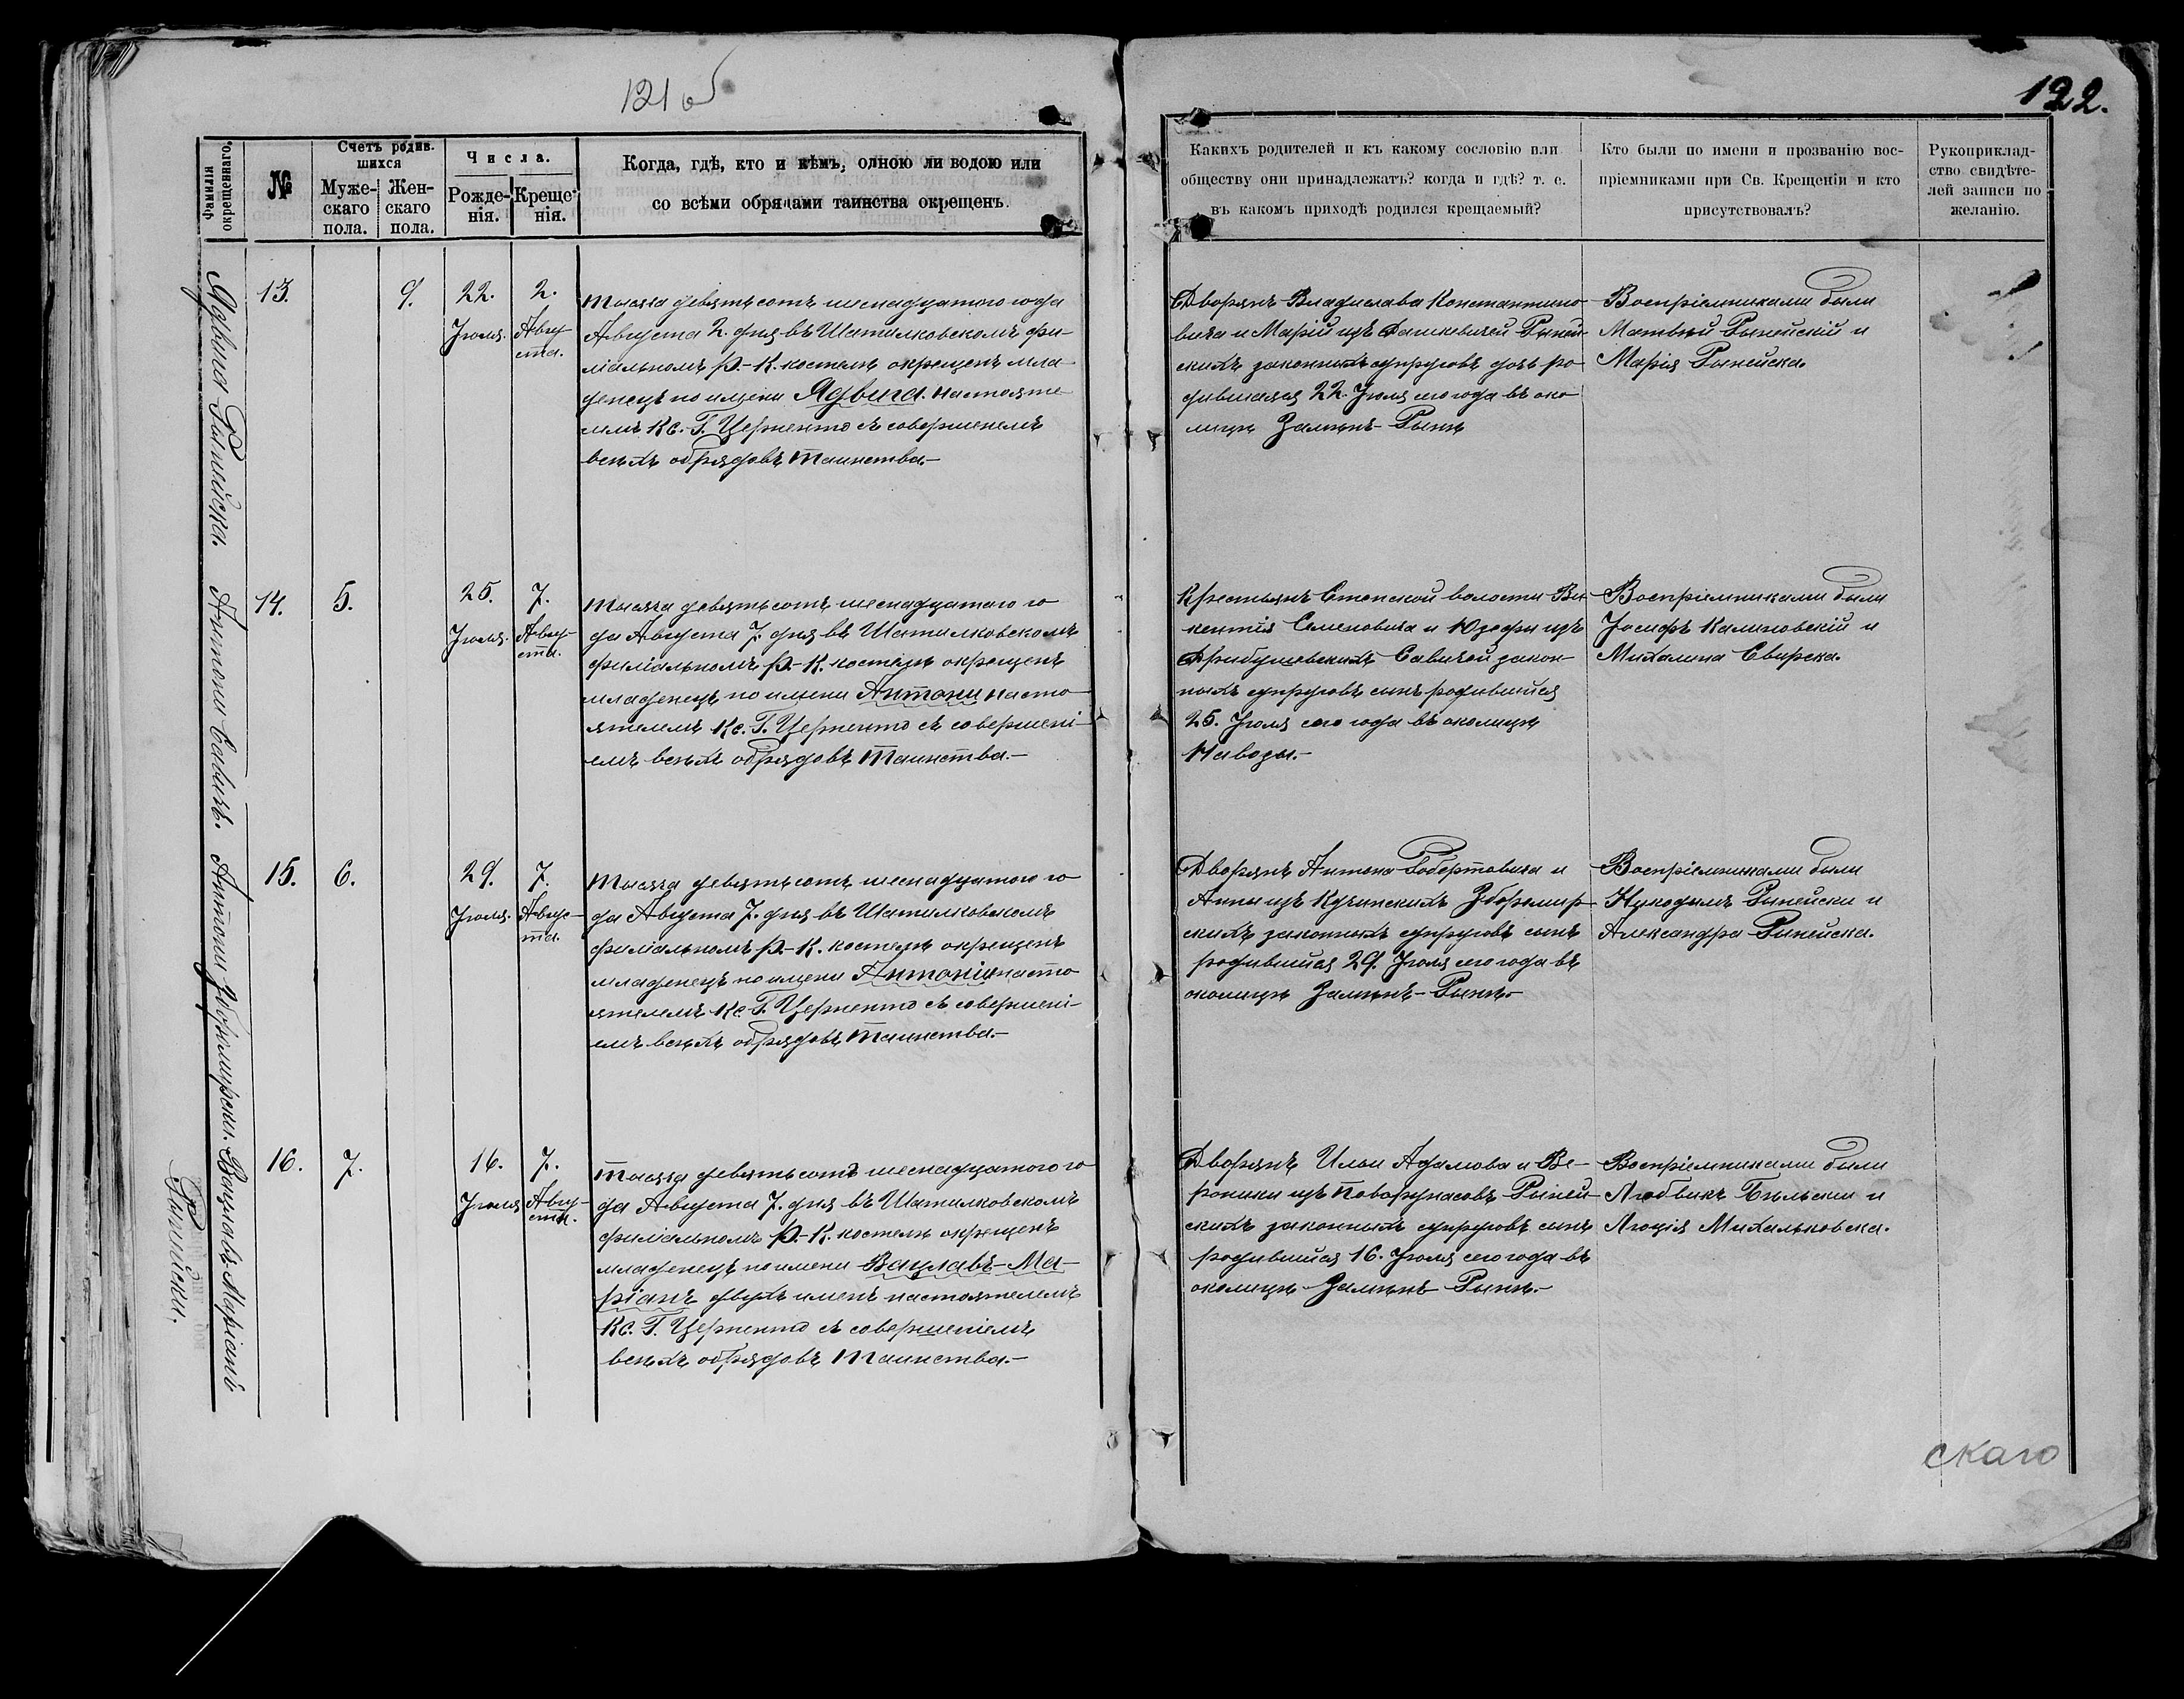 121 об
122.
Фамилія окрещеннаго.
№
Счетъ родив-
шихся
Муже-
скаго
пола.
Жен-
скаго
пола.
Числа.
Рожде-
нія.
Креще-
нія.
Когда, гдѣ, кто и кѣмъ, одною ли водою или
со всѣми обрядами таинства окрещенъ.
Какихъ родителей и къ какому сословію или
обществу они принадлежатъ? когда и гдѣ? т. е.
въ какомъ приходѣ родился крещаемый?
Кто были по имени и прозванію вос-
пріемниками при Св. Крещеніи и кто
присутствовалъ?
Рукоприклад-
ство свидѣте-
лей записи по
желанію.
Ядвига Рынейска.
13.
9.
22.
Іюля.
2.
Авгу-
ста.
Тысяча девятьсотъ шеснадцатого года
Августа 2. дня въ Шатилковскомъ фи-
ліальномъ Р.-К. костелѣ окрещенъ мла-
денецъ по имени Ядвига настояте-
лемъ Кс. Г. съ совершенемъ
всѣхъ обрядовъ Таинства.-
Дворянъ Владислава Константино-
вича и Маріи изъ Дашкевичей Рыней-
скихъ законныхъ супруговъ дочь ро-
дившаяся 22. Іюля сего года въ око-
лицѣ
Воспріемниками были
Матвей Рынейскій и
Марія Рынейска.
Антони Савичъ.
14.
5.
25.
Іюля.
7.
Авгу-
ста.
Тысяча девятьсотъ шеснадцатаго го-
да Августа 7. дня въ Шатилковскомъ
филіальномъ Р.-К. костелѣ окрещенъ
младенецъ по имени Антони насто-
ятелемъ Кс. Г. съ совершені-
емъ всѣхъ обрядовъ Таинства.-
Крестьянъ волости Ви-
кентія Семеновича и Юзефы изъ
Савичей закон-
ныхъ супруговъ сынъ родившійся
25. Іюля сего года въ околицѣ
Воспріемниками были
Іосифъ Калиновскій и
Михалина Свирска.
Антони
15.
6.
29.
Іюля.
7.
Авгус-
та.
Тысяча девятьсотъ шеснадцатого го-
да Августа 7. дня въ Шатилковскомъ
филіальномъ Р.-К. костелѣ окрещенъ
младенецъ по имени Антоній насто-
ятелемъ Кс. Г. съ совершені-
емъ всѣхъ обрядовъ Таинства.-
Дворянъ Антона Робертовича и
Анны изъ Кучинскихъ Збромир-
скихъ законныхъ супруговъ сынъ
родившійся 29. Іюля сего года въ
околицѣ
Воспріемниками были
Никодымъ Рынейски и
Александра Рынейска.
Вацлавъ-Маріанъ
Рынейски.
16.
7.
16.
Іюля
7.
Авгу-
ста.
Тысяча девятьсотъ шеснадцатого го-
да Августа 7. дня въ Шатилковскомъ
филіальномъ Р.-К. костелѣ окрещенъ
младенецъ по имени Вацлавъ-Ма-
ріанъ двухъ именъ настоятелемъ
Кс. Г. съ совершеніемъ
всѣхъ обрядовъ Таинства.-
Дворянъ Ильи Адамова и Ве-
роники изъ Рыней-
скихъ законныхъ супруговъ сынъ
родившійся 16. Іюля сего года въ
околицѣ
Воспріемниками были
Людвикъ Бѣльски и
Люція Михальковска.
скаго